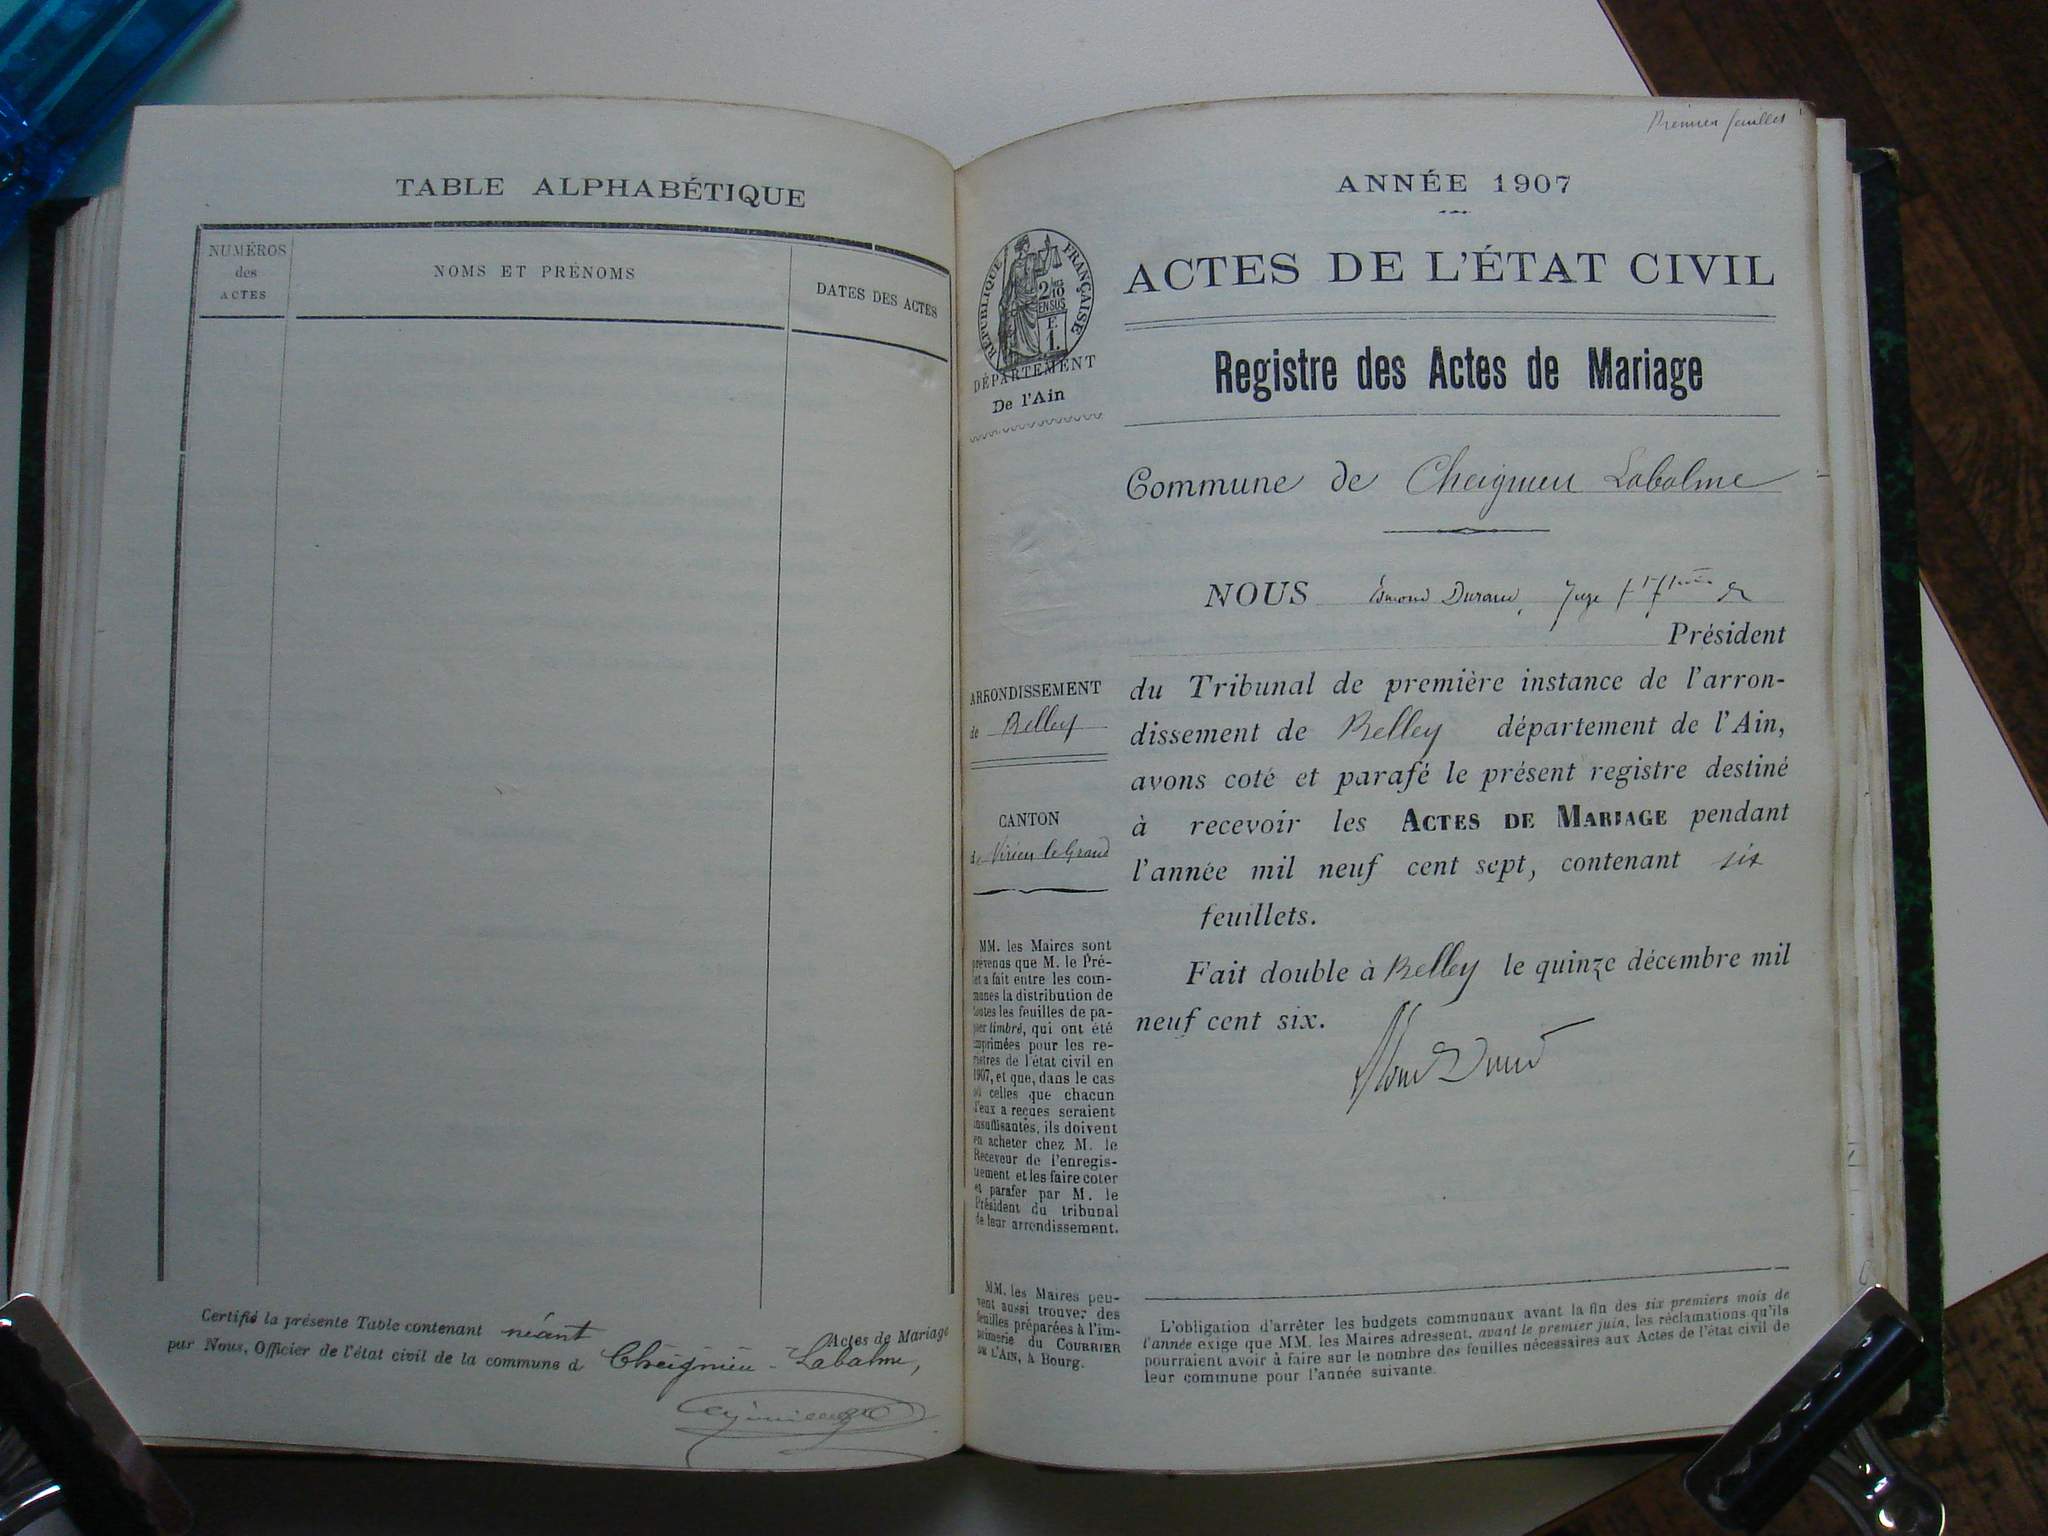 TABLE ALPHABÉTIQUE
NUMÉROS
des
ACTES
NOMS ET PRÉNOMS
DATES DES ACTES
Certifié la présente Table contenant néant Actes de Mariage
par Nous, Officier de l'état civil de la commune d Cheignieu-Labalme,
Premier feuillet
ANNÉE 1907
RÉPUBLIQUE FRANÇAISE
2/10
EN SUS
E
1.
DÉPARTEMENT
De l'Ain
ACTES DE L'ÉTAT CIVIL
Registre des Actes de Mariage
Commune de Cheignieu Labalme
NOUS Esmond Durand, Juge
Président
du Tribunal de première instance de l'arron-
dissement de Belley département de l'Ain,
avons coté et parafé le présent registre destiné
à recevoir les ACTES DE MARIAGE pendant
l'année mil neuf cent sept, contenant six
feuillets.
Fait double à Belley le quinze décembre mil
neuf cent six.
ARRONDISSEMENT
de Belley
CANTON
de Virieu le Grand
MM. les Maires sont
prévenus que M. le Pré-
fet a fait entre les com-
munes la distribution de
toutes les feuilles de pa-
pier timbré, qui ont été
imprimées pour les re-
gistres de l'état civil en
1907, et que, dans le cas
où celles que chacun
d'eux a reçues seraient
insuffisantes, ils doivent
en acheter chez M. le
Receveur de l'enregis-
trement et les faire coter
et parafer par M. le
Président du tribunal
de leur arrondissement.
MM. les Maires peu-
vent aussi trouver des
feuilles préparées à l'im-
primerie du COURRIER
DE L'AIN, à Bourg.
L'obligation d'arrêter les budgets communaux avant la fin des six premiers mois de
l'année exige que MM. les Maires adressent, avant le premier juin, les réclamations qu'ils
pourraient avoir à faire sur le nombre des feuilles nécessaires aux Actes de l'état civil de
leur commune pour l'année suivante.